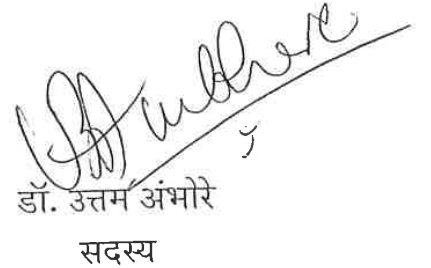 डॉ. उत्तम अंभोरे
सदस्य